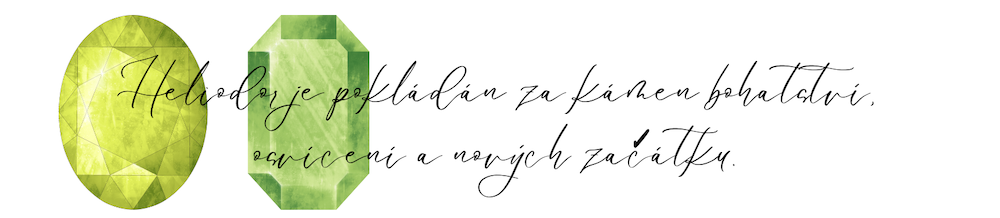 Heliodor je pokládán za kámen bohatství,
osvícení a nových začátku.